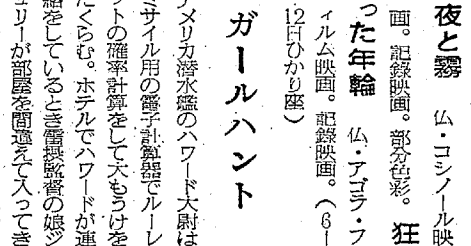 夜と霧　仏・コシノール映
画。記録映画。部分色彩。狂
った年輪　仏・アゴラ・フ
ィルム映画。記録映画。（6ー
12日ひかり座）
ガールハント
アメリカ潜水艦のハワード大尉は
ミサイル用の電子計算器でルーレ
ットの確率計算をして大もうけを
たくらむ。ホテルでハワードが連
絡をしているとき雷撲監督の娘ジ
ュリーが部屋を間違えて入ってき